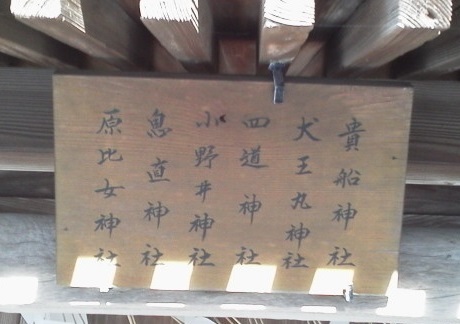 貴船神社
犬王丸神社
四道神社
小野井神社
息直神社
原比女神社